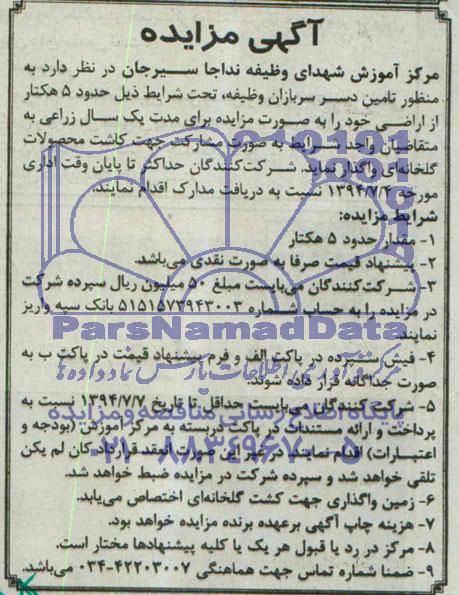 آگهی مزایده
مرکز آموزش شهدای وظیفه نداجا سیرجان در نظر دارد به
منظور تامین دسر سربازان وظیفه، تحت شرایط ذیل حدود ۵ هکتار
از اراضی خود را به صورت مزایده برای مدت یک سال زراعی به
متقاضیان واجد شرایط به صورت مشارکت جهت کاشت محصولات
گلخانه‌ای واگذار نماید. شرکت‌کنندگان حداکثر تا پایان وقت اداری
مورخه ۱۳۹۴/۷/۴ نسبت به دریافت مدارک اقدام نمایند.
شرایط مزایده:
۱- مقدار حدود ۵ هکتار
۲- پیشنهاد قیمت صرفا به صورت نقدی می‌باشد.
۳- شرکت‌کنندگان می‌بایست مبلغ ۵۰ میلیون ریال سپرده شرکت
در مزایده را به حساب شماره ۵۱۵۱۵۷۳۹۴۳۰۰۳ بانک سپه واریز
نمایند.
ParsNamadData
۴- فیش سپرده در پاکت الف و فرم پیشنهاد قیمت در پاکت ب به
صورت جداگانه قرار داده شوند.
مرکز فرآوری اطلاعات پارس نماد داده ها
۵- شرکت کنندگان می‌بایست حداقل تا تاریخ ۱۳۹۴/۷/۷ نسبت به
پایگاه اطلاع رسانی مناقصه و مزایده
پرداخت و ارائه مستندات در پاکت دربسته به مرکز آموزش (بودجه و
اعتبارات) اقدام نمایند. در غیر این صورت عقد قرارداد کان لم یکن
۰۲۱-۸۸۳۴۹۶۷۰-۵
تلقی خواهد شد و سپرده شرکت در مزایده ضبط خواهد شد.
۶- زمین واگذاری جهت کشت گلخانه‌ای اختصاص می‌یابد.
۷- هزینه چاپ آگهی برعهده برنده مزایده خواهد بود.
۸- مرکز در رد یا قبول هر یک یا کلیه پیشنهادها مختار است.
۹- ضمنا شماره تماس جهت هماهنگی ۴۲۲۰۳۰۰۷-۰۳۴ می‌باشد.